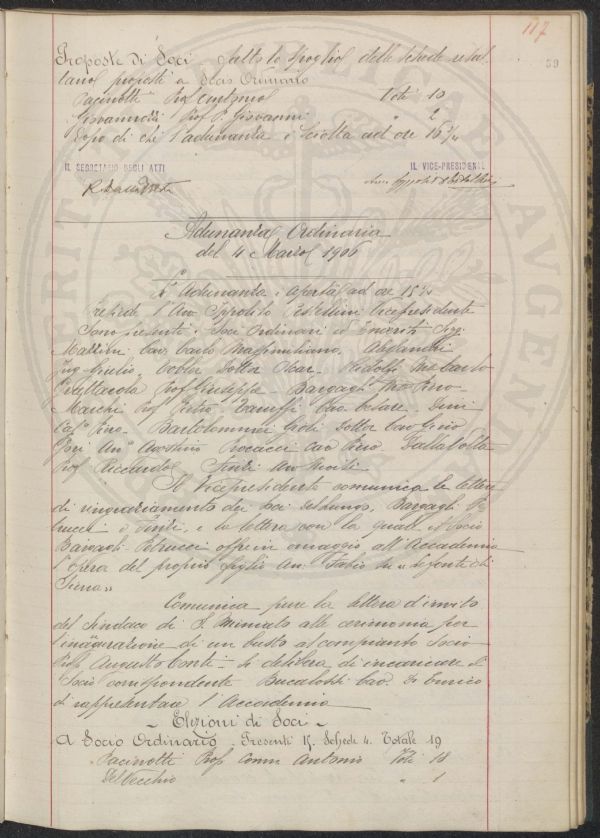 117
59
Proposte di Soci - Fatto lo spoglio delle schede resul-
tano proposti a Socio Ordinario
Pacinotti Prof Antonio Voti 10
Giovannozzi Prof P. Giovanni " 2
Dopo di che l'adunanza è sciolta ad ore 16 3/4
IL SEGRETARIO DEGLI ATTI IL VICE-PRESIDENTE
R. Dalla Volta Avv. Ippolito Pestellini
Adunanza Ordinaria
del 4 Marzo 1906
L'Adunanza è aperta ad ore 15
Presiede l'Avv Ippolito Pestellini Vicepresidente
Sono presenti i Soci Ordinari ed Emeriti Sigg:
Cav. Carlo Massimiliano, Alessandri
Ing Giulio, Dottor Oscar - Ridolfi March Carlo
Prof Giuseppe - Bargagli Piero -
Marchi Prof Pietro, Caruffi Cav. Cesare - Dini
Piro - Bartolommei Gioli Dottor Gino
Agostino Procacci Cav Piero - Dalla Volta
Prof Riccardo Finzi Avv
Il Vicepresidente comunica le lettere
di ringraziamento dei Soci Del Lungo, Bargagli Pe-
trucci e Finzi, e la lettera con la quale il Socio
Bargagli Petrucci offre in omaggio all'Accademia
l'opera del proprio figlio Fabio su "Le fonti di
Siena"
Comunica pure la lettera d'invito
del Sindaco di S. Miniato alle cerimonia per
l'inaugurazione di un busto al compianto Socio
Prof Augusto Conti - Si delibera di incaricare il
Socio corrispondente Bucalossi Cav. Enrico
di rappresentare l'Accademia
- Elezioni di Soci -
A Socio Ordinario - Presenti 15. Schede 4. Totale 19
Pacinotti Prof Comm Antonio Voti 18
Del Vecchio " 1